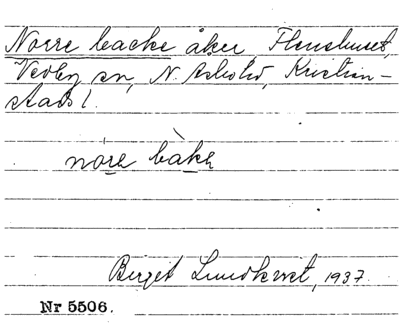 Norre backe åker, Flenshuset,
Vedby sn, N. Åsbohd, Kristian-
stads l.
nóre bàke
Birgit Lundkvist, 1937.
Nr 5506.